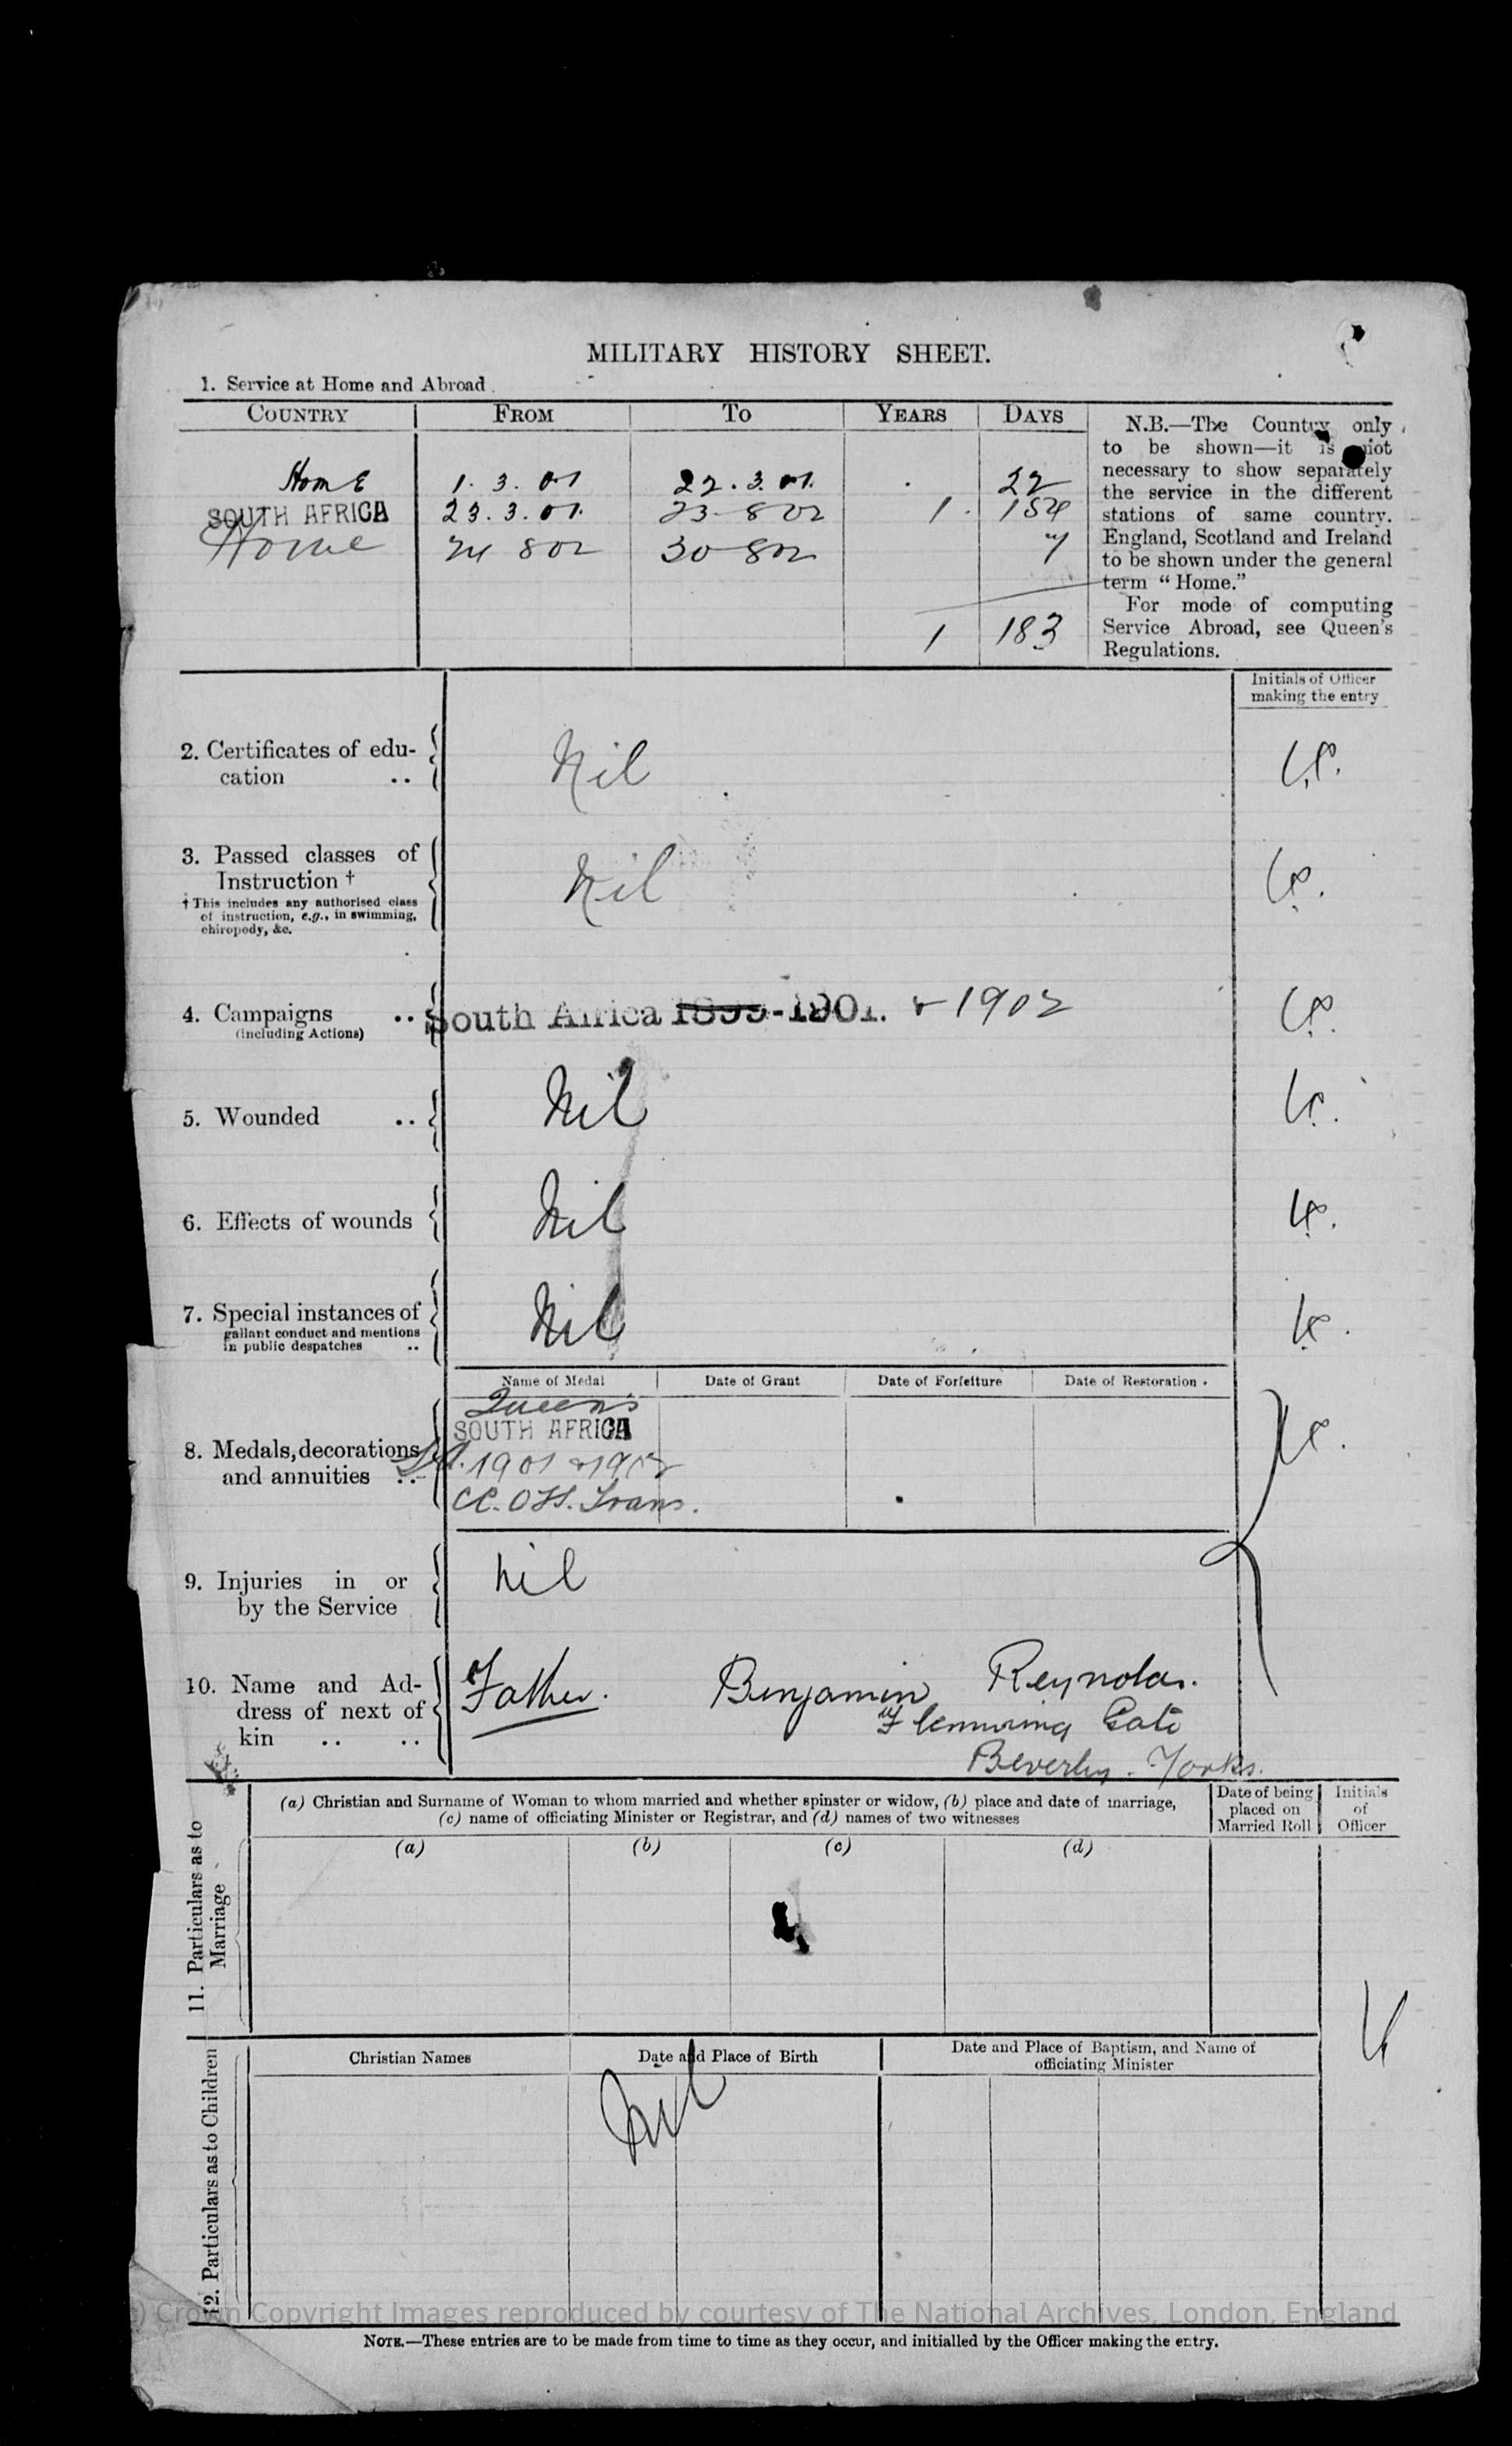 MILITARY HISTORY SHEET.
1. Service at Home and Abroad
COUNTRY FROM TO YEARS DAYS
Home 1. 3. 01 22. 3. 01. 22
SOUTH AFRICA 23. 3. 01. 23 8 02 1. 154
Home 24 8 02 30 8 02 7
1 183
N.B.—The Country only
to be shown—it is not
necessary to show separately
the service in the different
stations of same country.
England, Scotland and Ireland
to be shown under the general
term “Home.”
For mode of computing
Service Abroad, see Queen's
Regulations.
Initials of Officer
making the entry
2. Certificates of edu-
cation ..
Nil
3. Passed classes of
Instruction †
† This includes any authorised class
of instruction, e.g., in swimming,
chiropody, &c.
Nil
4. Campaigns ..
(including Actions)
South Africa 1899-1901. & 1902
5. Wounded ..
Nil
6. Effects of wounds
Nil
7. Special instances of
gallant conduct and mentions
in public despatches ..
Nil
Name of Medal Date of Grant Date of Forfeiture Date of Restoration
8. Medals, decorations
and annuities ..
Queen's
SOUTH AFRICA
1901 & 1902
CC. OFS. Trans.
9. Injuries in or
by the Service
Nil
10. Name and Ad-
dress of next of
kin .. ..
Father. Benjamin Reynolds.
Flemming Gate
Beverley. Yorks.
11. Particulars as to
Marriage
(a) Christian and Surname of Woman to whom married and whether spinster or widow, (b) place and date of marriage,
(c) name of officiating Minister or Registrar, and (d) names of two witnesses
Date of being
placed on
Married Roll
Initials
of
Officer
(a) (b) (c) (d)
12. Particulars as to Children
Christian Names Date and Place of Birth
Date and Place of Baptism, and Name of
officiating Minister
Nil
) Crown Copyright Images reproduced by courtesy of The National Archives, London, England
NOTE.—These entries are to be made from time to time as they occur, and initialled by the Officer making the entry.